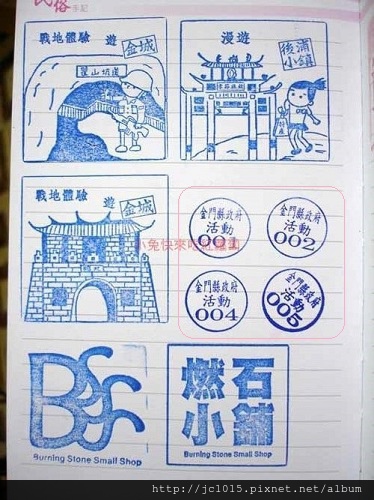 手記
戰地體驗 遊 金城
翟山坑道
漫遊
後浦
小鎮
戰地體驗 遊 金城
小兔快來吃紅蘿蔔
金門縣政府
活動
001
金門縣政府
活動
002
金門縣政府
活動
004
金門縣政府
活動
005
BSSS
Burning Stone Small Shop
燃石
小舖
Burning Stone Small Shop
http://jc1015.pixnet.net/album